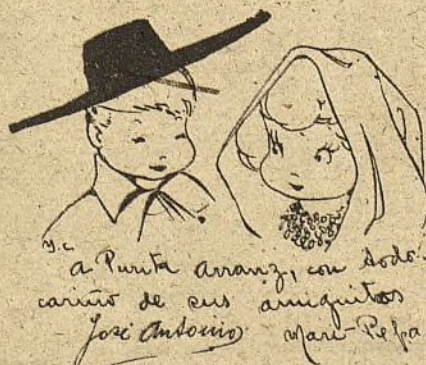 Y.C.
a Purita Arranz, con todo
cariño de sus amiguitos
José Antonio Mari-Pepa